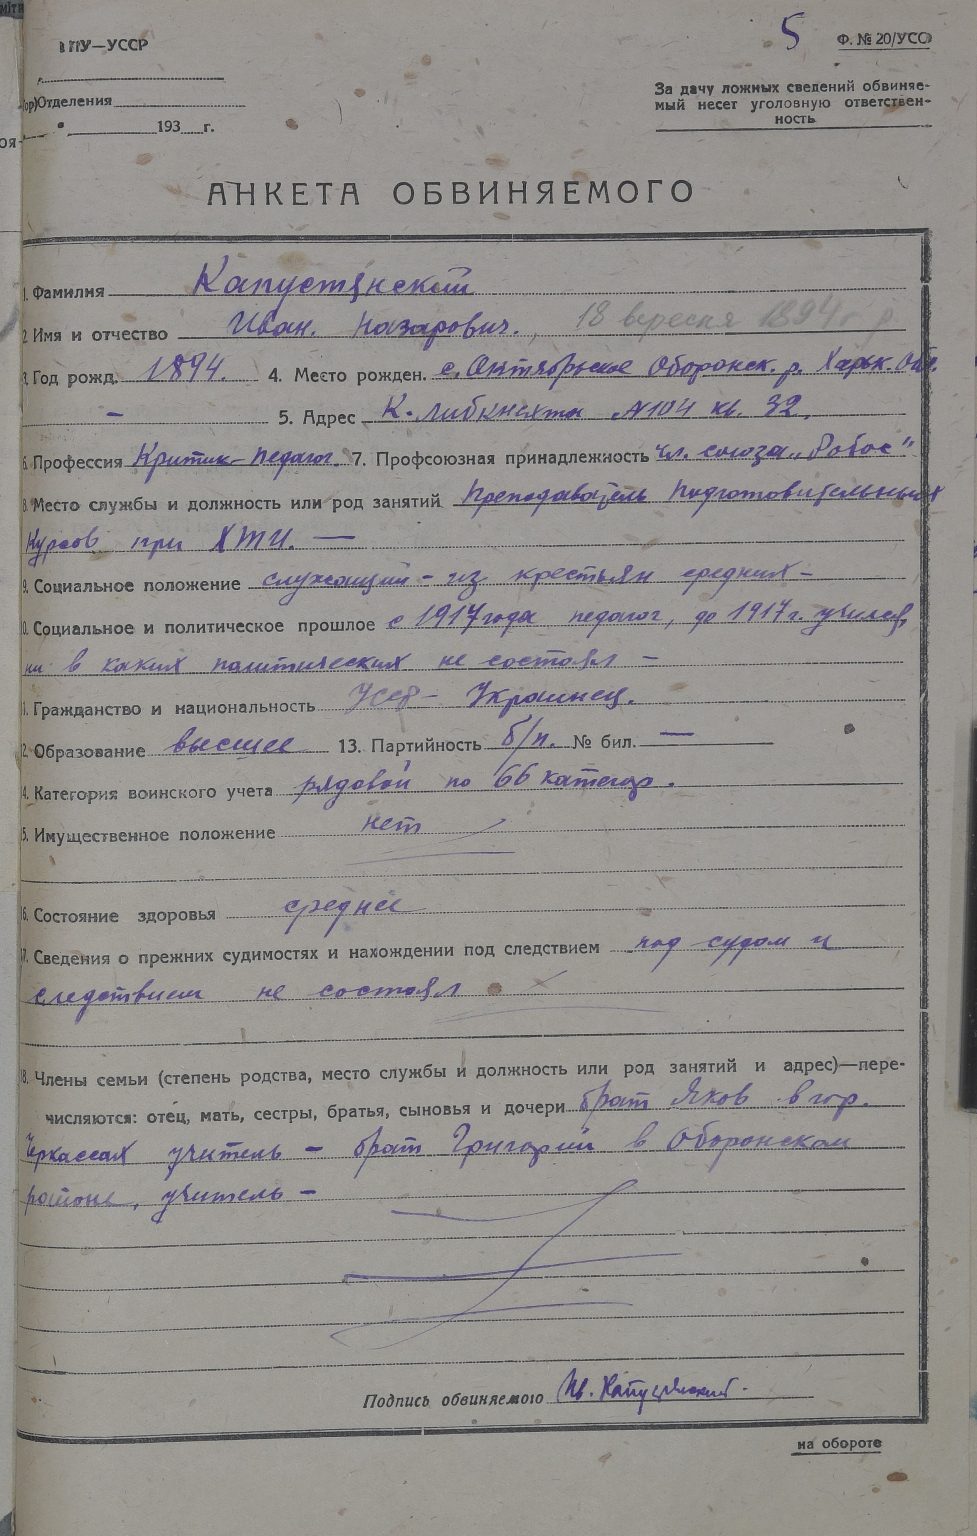 ГПУ—УССР
5
Ф. № 20/УСО
Отделения
193 г.
За дачу ложных сведений обвиняе-
мый несет уголовную ответствен-
ность
АНКЕТА ОБВИНЯЕМОГО
1. Фамилия Капустянский
2. Имя и отчество Иван Назарович. 18 вересня 1894 г.
3. Год рожд. 1894. 4. Место рожден. с. Октябрьское Оборонск. р. Харьк. Обл.
— 5. Адрес К. Либкнехта №104 кв. 32.
6. Профессия Критик-педагог. 7. Профсоюзная принадлежность чл. союза „Робос"
8. Место службы и должность или род занятий Преподаватель подготовительных
Курсов при ХТИ. —
9. Социальное положение служащий – из крестьян средних –
10. Социальное и политическое прошлое с 1917 года педагог, до 1917 г. учился,
ни в каких политических не состоял –
11. Гражданство и национальность УССР – Украинец.
12. Образование высшее 13. Партийность б/п. № бил. —
14. Категория воинского учета рядовой по 66 категор.
15. Имущественное положение нет
16. Состояние здоровья среднее
17. Сведения о прежних судимостях и нахождении под следствием под судом и
следствием не состоял
18. Члены семьи (степень родства, место службы и должность или род занятий и адрес)—пере-
числяются: отец, мать, сестры, братья, сыновья и дочери брат Яков в гор.
Черкассах учитель – брат Григорий в Оборонском
районе, учитель –
Подпись обвиняемого Ив. Капустянский.
на обороте